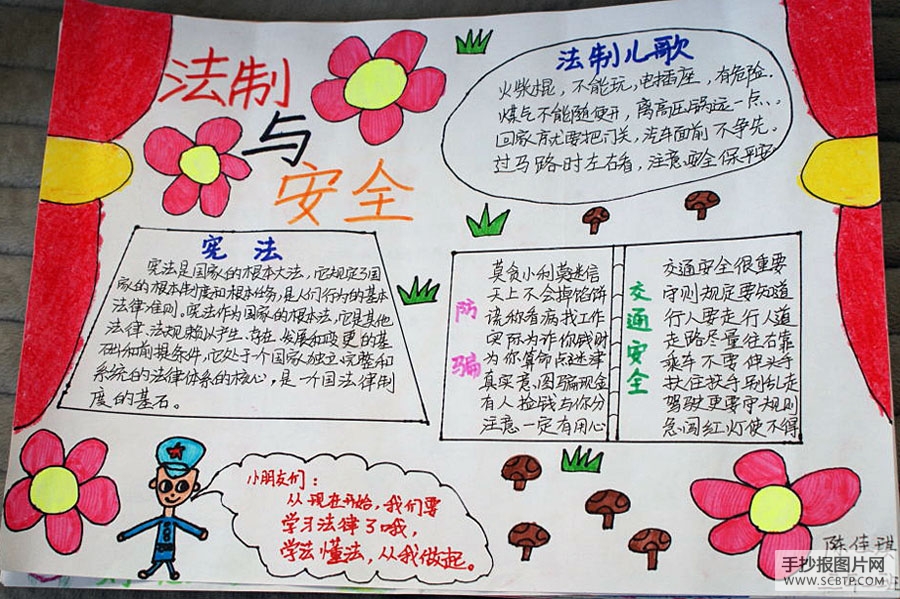 法制
与
安全
法制儿歌
火柴棍，不能玩，电插座，有危险．
煤气不能随便开，离高压锅远一点、、
回家京尤要把门关，汽车面前不争先。
过马路时左右看，注意安全保平安
宪法
宪法是国家的根本大法，它规定了国
家的根本制度和根本任务，是人们行为的基本
法律准则。宪法作为国家的根本法，它是其他
法律、法规赖以产生、存在、发展和变更的基
础和前提条件，它处于一个国家独立、完整和
系统的法律体系的核心，是一个国法律制
度的基石。
防骗
莫贪小利莫迷信
天上不会掉馅饼
谎你看病找工作
实际为诈你钱财
为你算命点迷津
真实意图骗现金
有人捡钱与你分
注意一定有用心
交通安全
交通安全很重要
守则规定要知道
行人要走行人道
走路尽量往右靠
乘车不要伸头手
扶住扶手别乱走
驾驶更要守规则
急闯红灯使不得
小朋友们：
从现在开始，我们要
学习法律了哦，
学法懂法，从我做起。
陈佳琪
手抄报图片网
WWW.SCBTP.COM